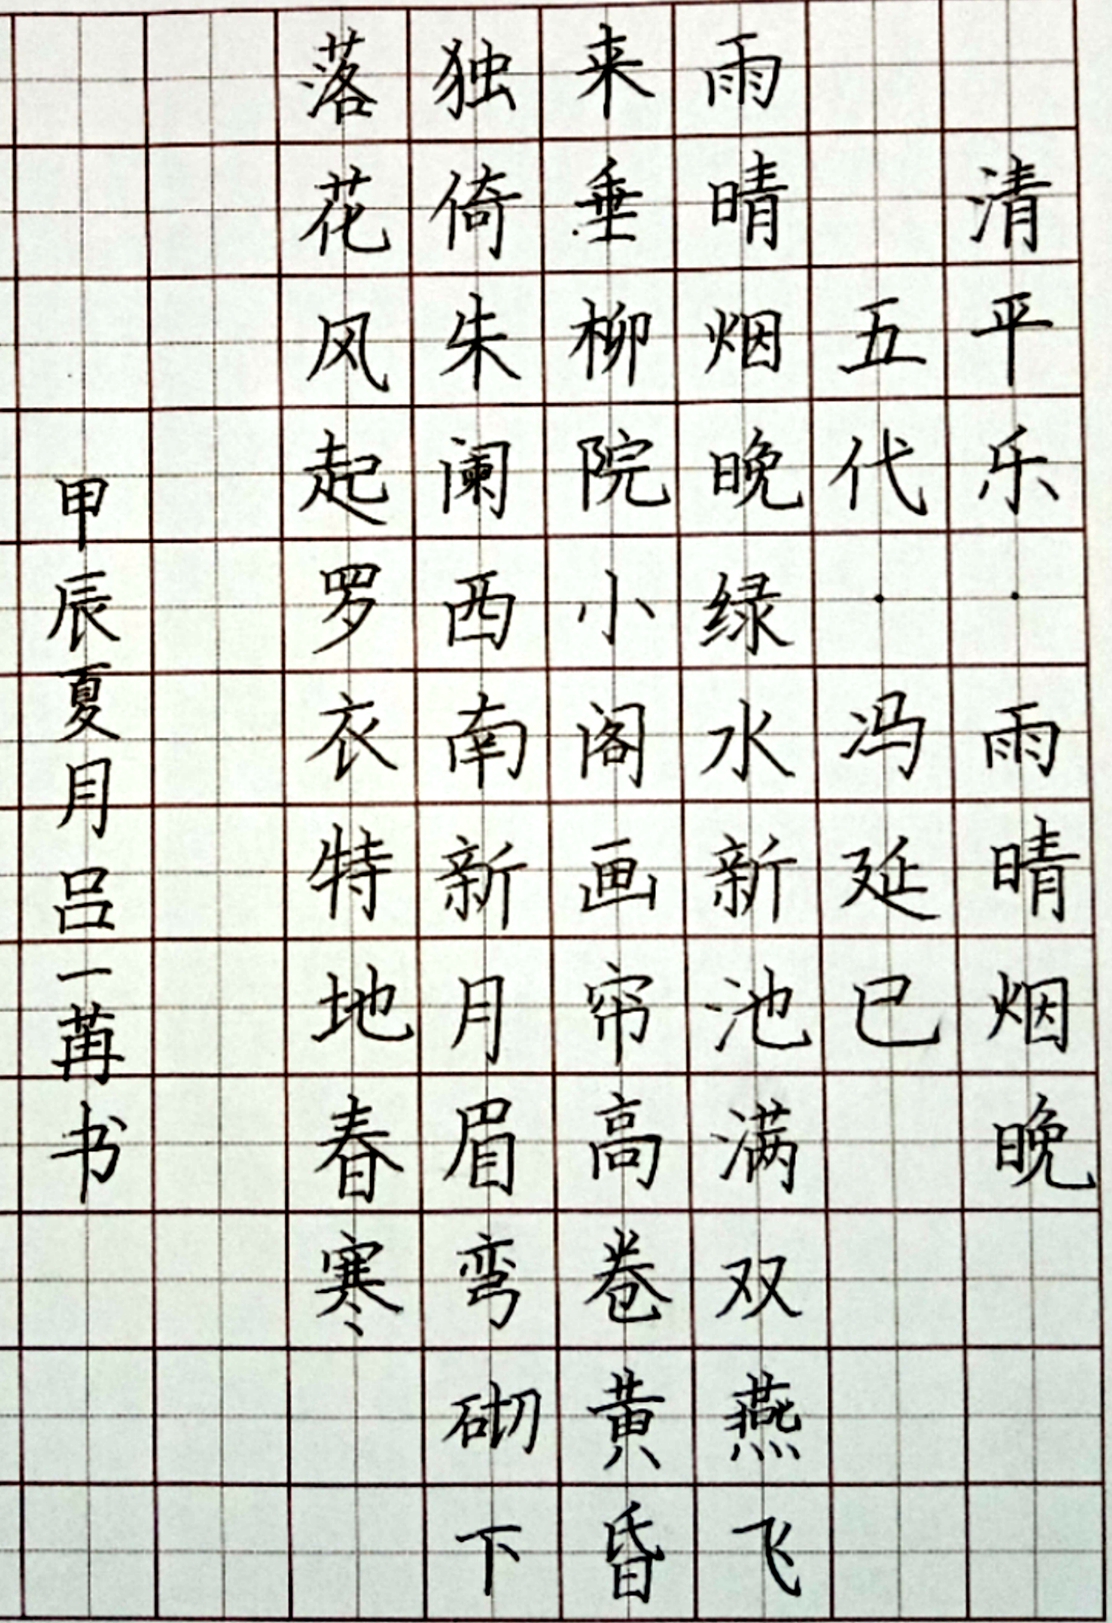 清平乐·雨晴烟晚
五代·冯延已
雨晴烟晚绿水新池满双燕飞
来垂柳院小阁画帘高卷黄昏
独倚朱阑西南新月眉弯砌下
落花风起罗衣特地春寒
甲辰夏月吕一苒书